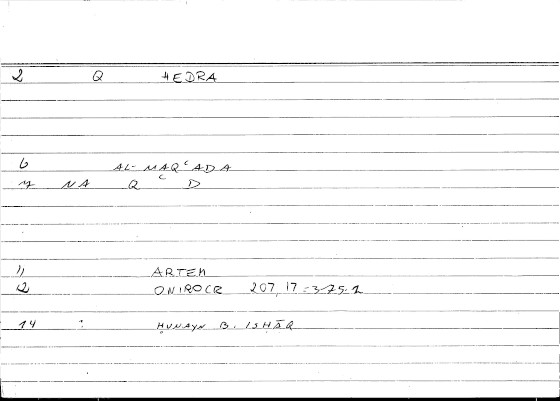 2 Q HEDRA
6 AL-MAQʿADA
7 NA Q ʿ D
11 ARTEM
12 ONIROCR 207,17 = 375.1
14 : ḤUNAYN B. ISḤĀQ